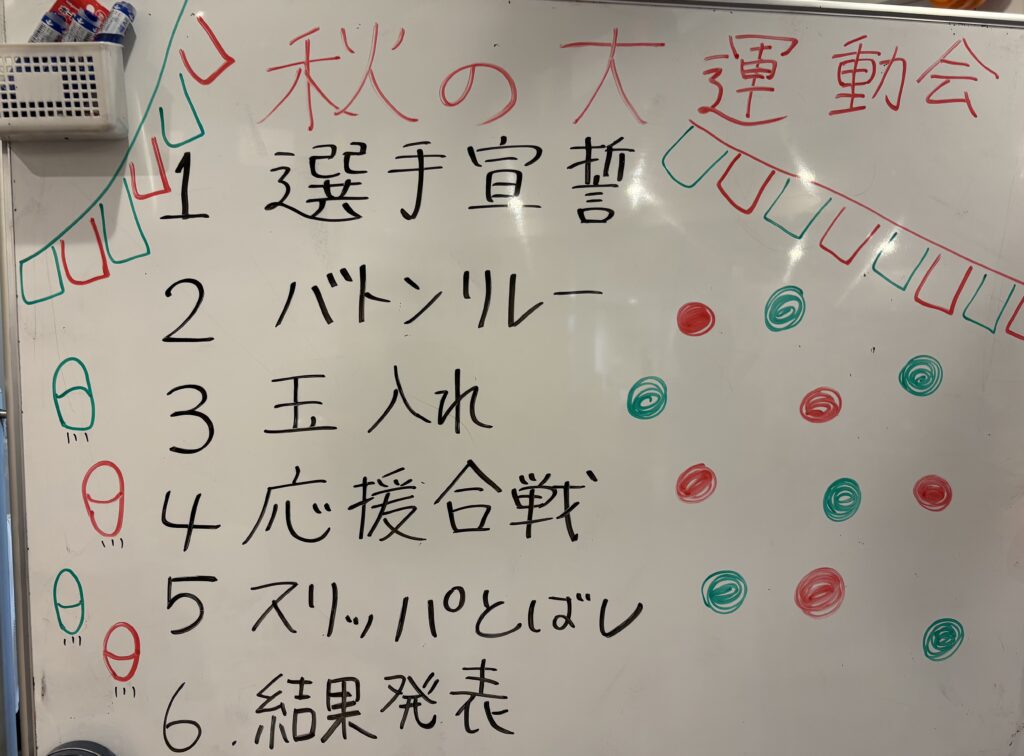 秋の大運動会
1 選手宣誓
2 バトンリレー
3 玉入れ
4 応援合戦
5 スリッパとばし
6. 結果発表